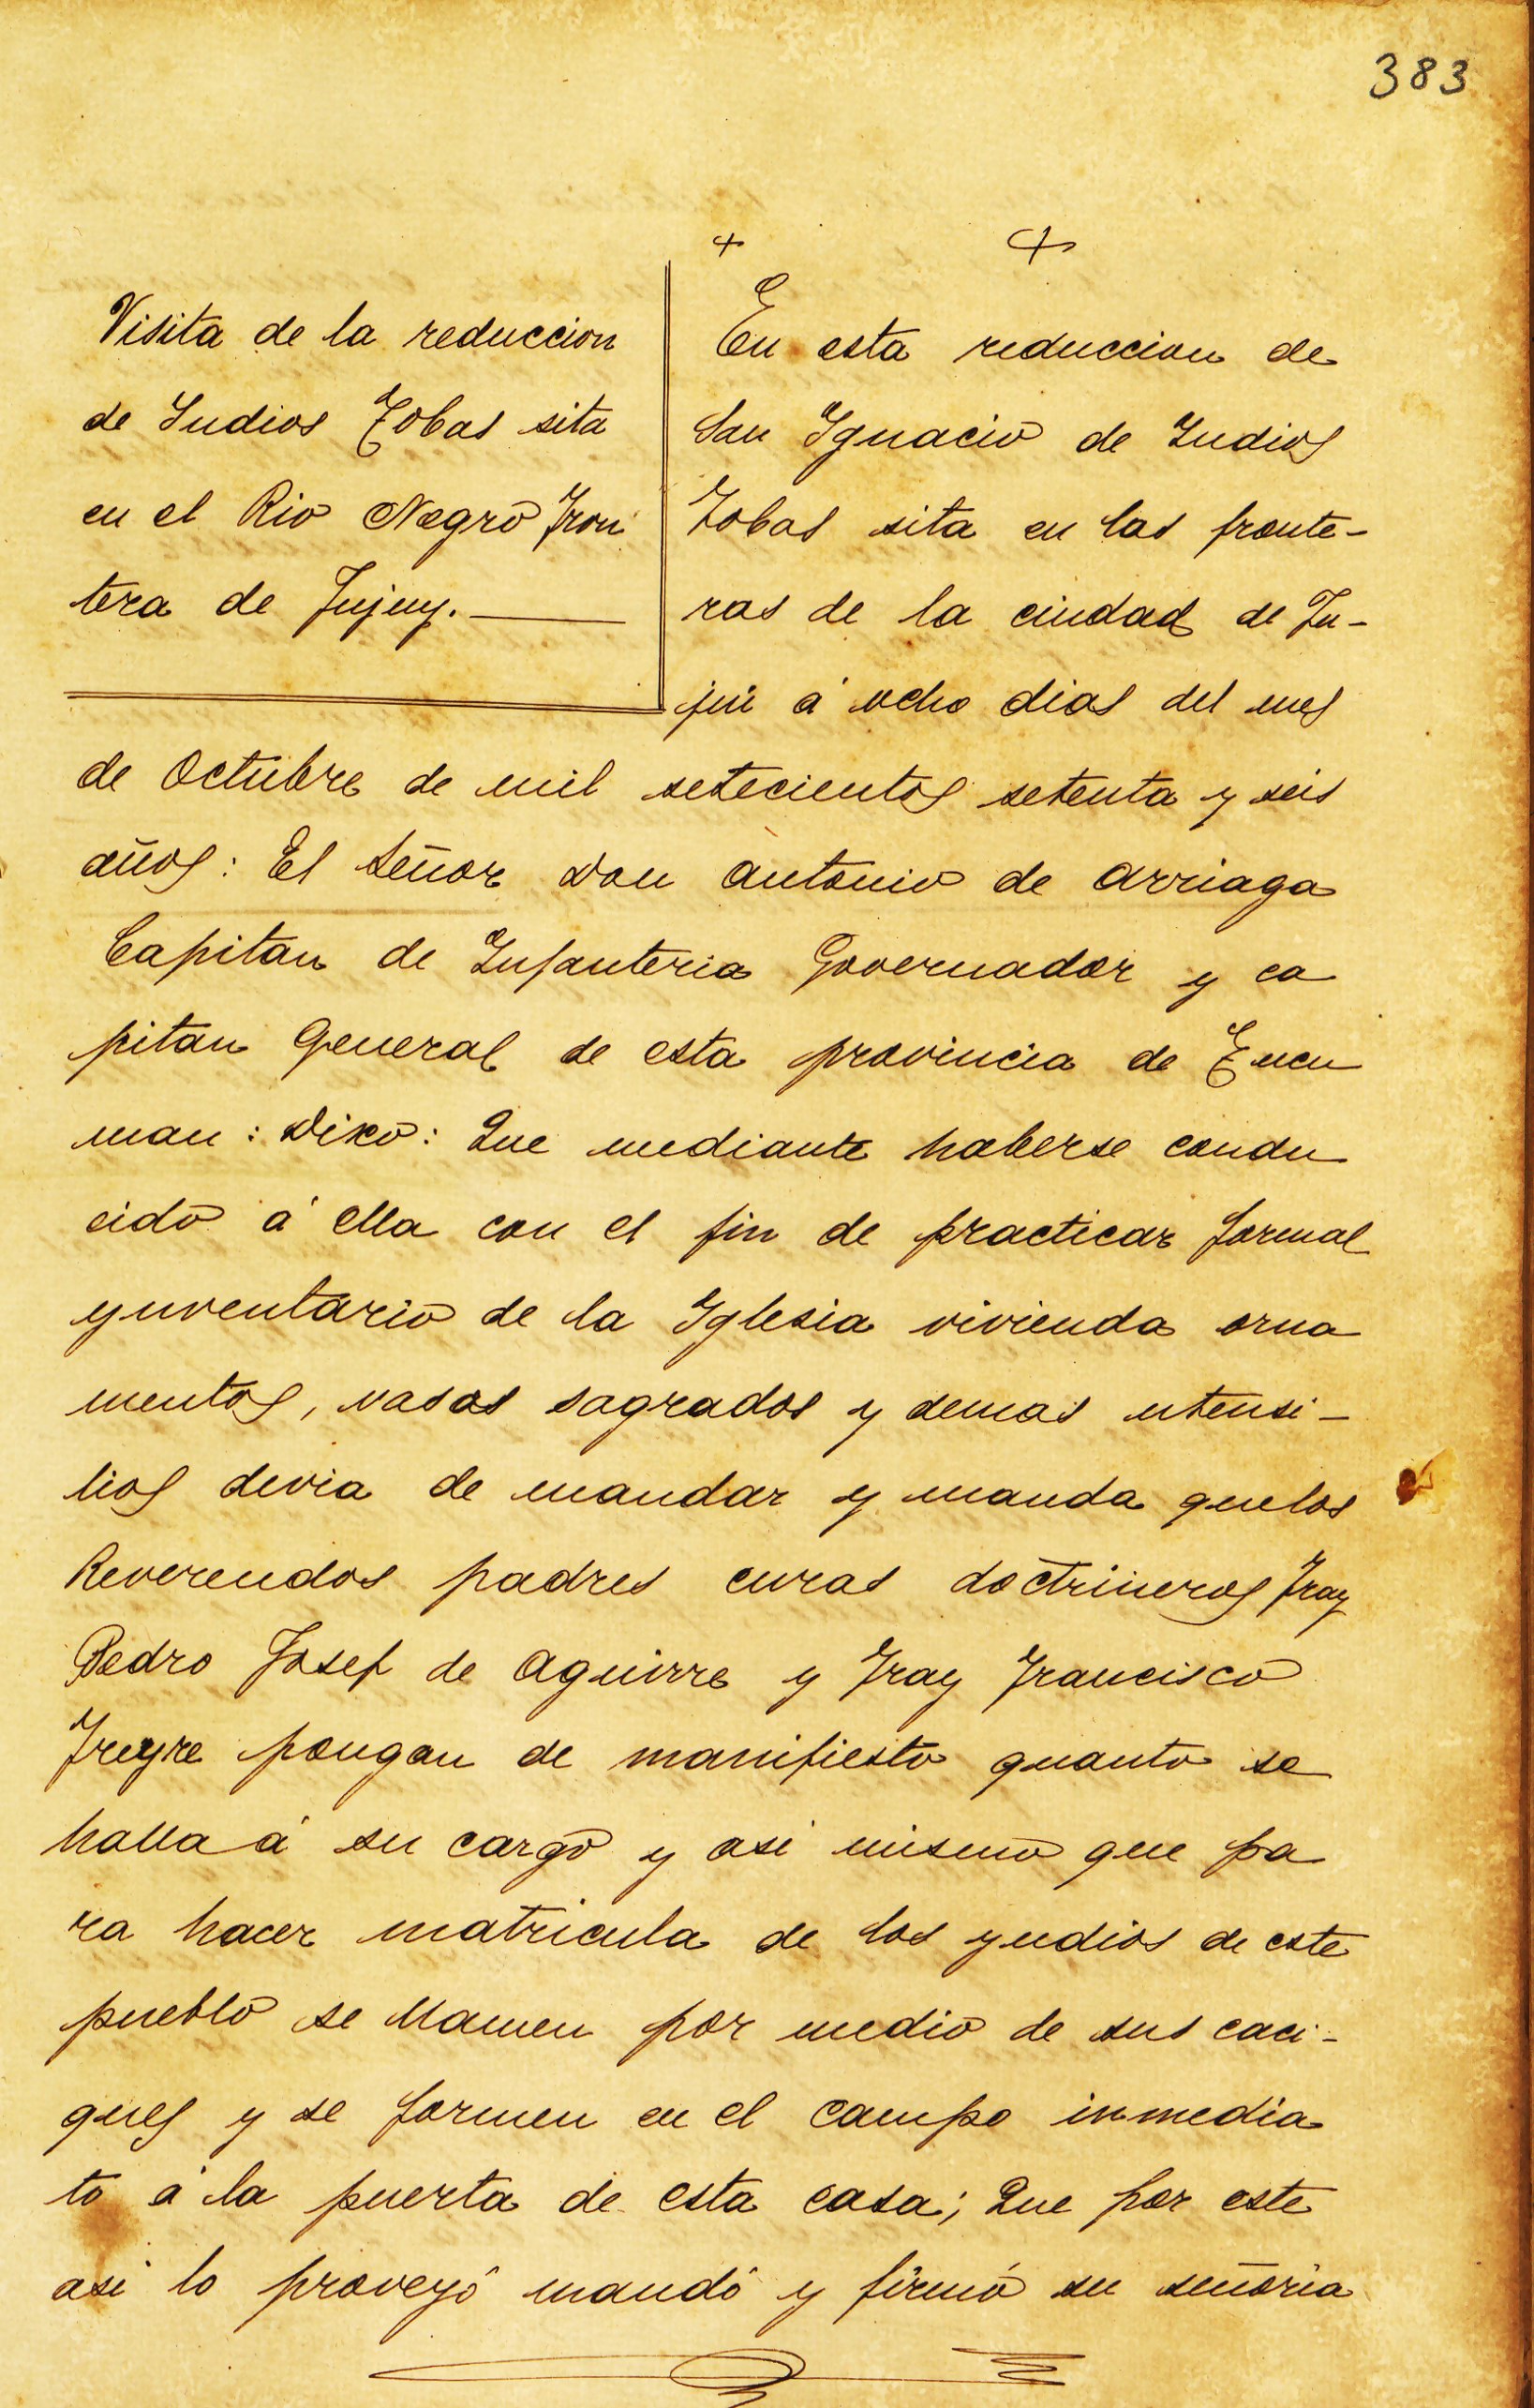 383
Visita de la reduccion
de Indios Tobas sita
en el Rio Negro Fron
tera de Jujuy.
En esta reduccion de
San Ignacio de Indios
Tobas sita en las fronte-
ras de la ciudad de Ju-
jui á ocho dias del mes
de Octubre de mil setecientos setenta y seis
años: El Señor Don Antonio de Arriaga
Capitan de Infanteria Governador y ca
pitan General de esta provincia de Tucu
man: Dixo: Que mediante haberse condu
cido á ella con el fin de practicar formal
ynventario de la Iglesia vivienda orna
mentos, vasos sagrados y demas utensi-
lios devia de mandar y manda que los
Reverendos padres curas doctrineros Fray
Pedro Josef de Aguirre y Fray Francisco
Freyre pongan de manifiesto quanto se
halla á su cargo y asi mismo que pa
ra hacer matricula de los yndios de este
pueblo se llamen por medio de sus caci-
ques y se formen en el campo inmedia
to á la puerta de esta casa; Que por este
asi lo proveyó mandó y firmó su señoria